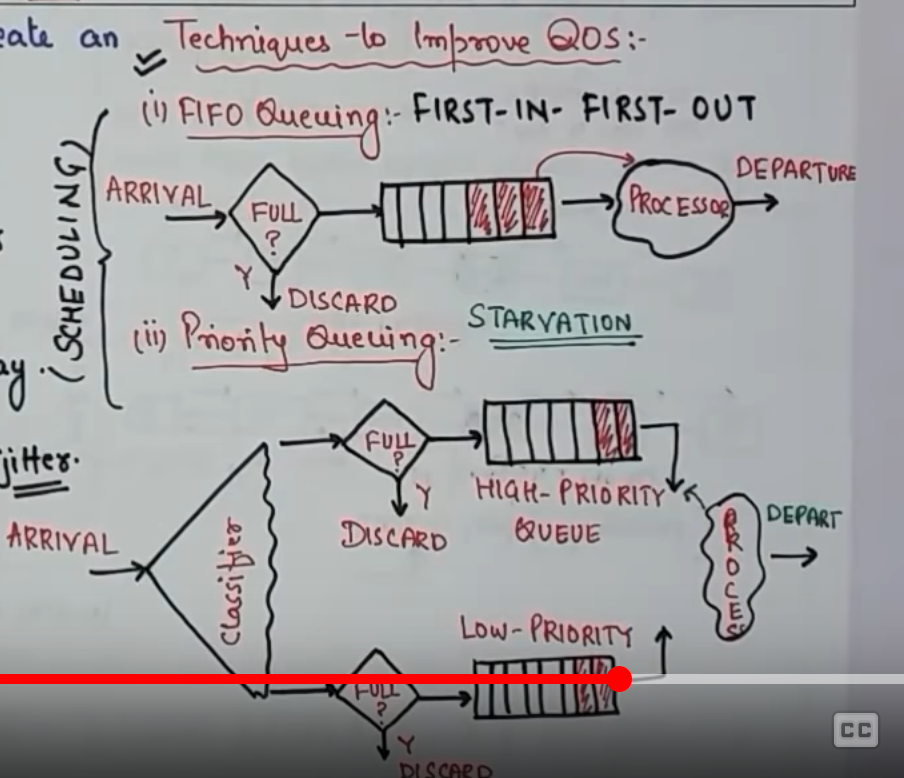 eate an
Techniques to Improve QOS:-
(SCHEDULING)
(i) FIFO Queuing:- FIRST-IN- FIRST-OUT
ARRIVAL
FULL
?
Y
DISCARD
PROCESSOR
DEPARTURE
(ii) Priority Queuing:- STARVATION
ay.
jitter.
ARRIVAL
Classifier
FULL
?
Y
DISCARD
HIGH-PRIORITY
QUEUE
PROCESS
DEPART
LOW-PRIORITY
FULL
?
Y
DISCARD
CC